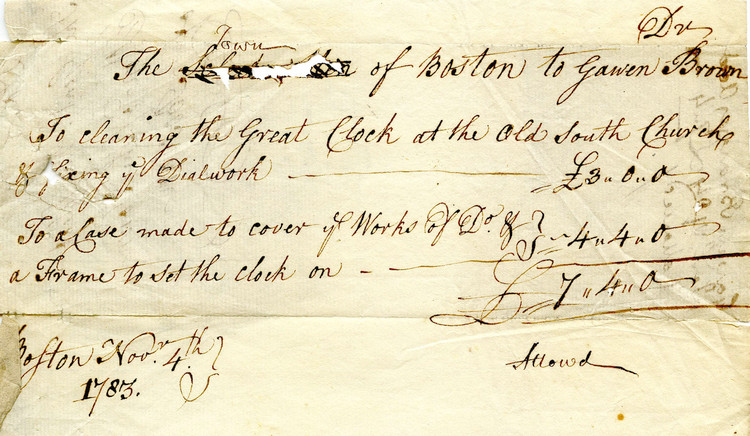 Dr
Town
The of Boston to Gawen Brown
To cleaning the Great Clock at the Old South Church
& fixing ye Dialwork £3 〃 0 〃 0
To a Case made to cover ye Works of Do. & 4 〃 4 〃 0
a Frame to set the clock on
£ 7 〃 4 〃 0
Boston Novr. 4th
1783.
Allowd